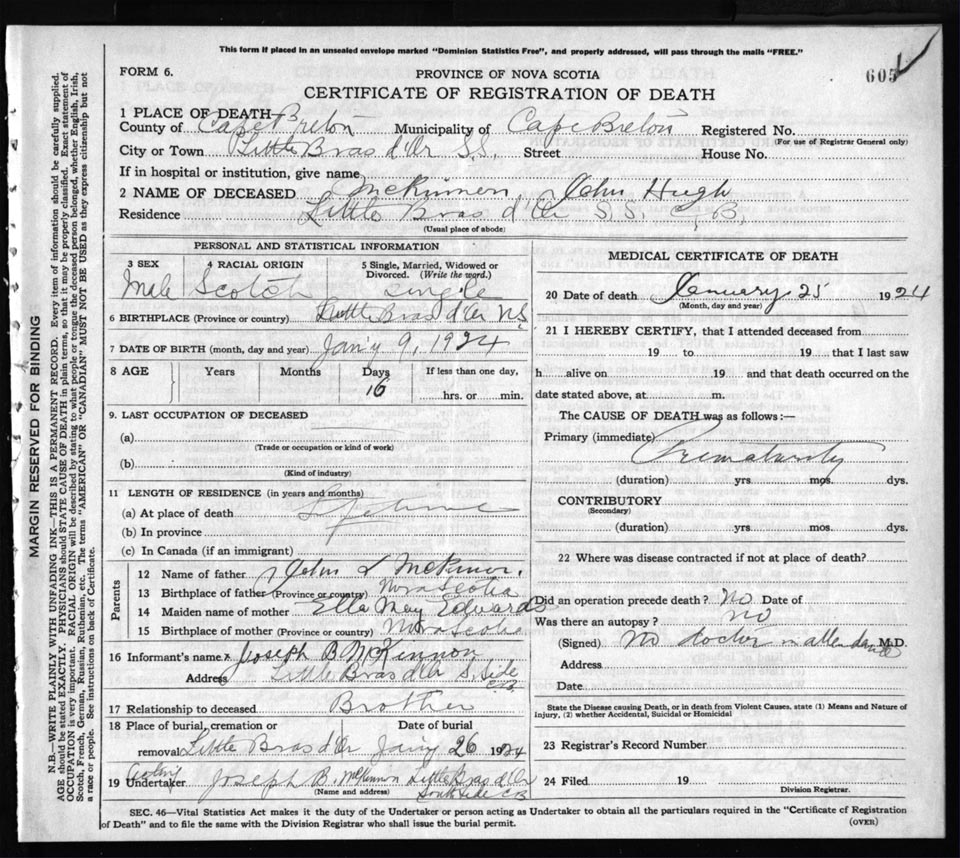 This form if placed in an unsealed envelope marked "Dominion Statistics Free", and properly addressed, will pass through the mails "FREE."
FORM 6.
PROVINCE OF NOVA SCOTIA
605
CERTIFICATE OF REGISTRATION OF DEATH
1 PLACE OF DEATH
County of Cape Breton Municipality of Cape Breton Registered No.
(For use of Registrar General only)
City or Town Little Bras d'Or S.S. Street House No.
If in hospital or institution, give name
2 NAME OF DECEASED McKinnon, John Hugh
Residence Little Bras d'Or S.S. C.B.
(Usual place of abode)
PERSONAL AND STATISTICAL INFORMATION
3 SEX 4 RACIAL ORIGIN 5 Single, Married, Widowed or Divorced. (Write the word.)
Male Scotch Single
6 BIRTHPLACE (Province or country) Little Bras d'Or N.S.
7 DATE OF BIRTH (month, day and year) Jan'y 9, 1924
8 AGE Years Months Days If less than one day,
16 hrs. or min.
9. LAST OCCUPATION OF DECEASED
(a)
(Trade or occupation or kind of work)
(b)
(Kind of industry)
11 LENGTH OF RESIDENCE (in years and months)
(a) At place of death Lifetime
(b) In province
(c) In Canada (if an immigrant)
Parents
12 Name of father John L McKinnon
13 Birthplace of father (Province or country) Nova Scotia
14 Maiden name of mother Ella May Edwards
15 Birthplace of mother (Province or country) Nova Scotia
16 Informant's name Joseph B McKinnon
Address Little Bras d'Or S. Side CB
17 Relationship to deceased Brother
18 Place of burial, cremation or Date of burial
removal Little Bras d'Or Jan'y 26 1924
Acting
19 Undertaker Joseph B. McKinnon Little Bras d'Or
(Name and address) South Side CB
MEDICAL CERTIFICATE OF DEATH
20 Date of death January 25 1924
(Month, day and year)
21 I HEREBY CERTIFY, that I attended deceased from
19 to 19 that I last saw
h alive on 19 and that death occurred on the
date stated above, at m.
The CAUSE OF DEATH was as follows:—
Primary (immediate) Prematurity
(duration) yrs. mos. dys.
CONTRIBUTORY
(Secondary)
(duration) yrs. mos. dys.
22 Where was disease contracted if not at place of death?
Did an operation precede death? No Date of
Was there an autopsy? No
(Signed) No doctor in attendance M.D.
Address
Date
State the Disease causing Death, or in death from Violent Causes, state (1) Means and Nature of
Injury, (2) whether Accidental, Suicidal or Homicidal
23 Registrar's Record Number
24 Filed 19
Division Registrar.
SEC. 46—Vital Statistics Act makes it the duty of the Undertaker or person acting as Undertaker to obtain all the particulars required in the "Certificate of Registration
of Death" and to file the same with the Division Registrar who shall issue the burial permit.
(OVER)
MARGIN RESERVED FOR BINDING
N.B.—WRITE PLAINLY WITH UNFADING INK—THIS IS A PERMANENT RECORD. Every item of information should be carefully supplied.
AGE should be stated EXACTLY. PHYSICIANS should STATE CAUSE OF DEATH in plain terms, so that it may be properly classified. Exact statement of
OCCUPATION is very important. RACIAL ORIGIN will be described by stating to what people or tongue the deceased person belonged, whether English, Irish,
Scotch, French, German, Russian, Ruthenian, etc. The terms "AMERICAN" or "CANADIAN" MUST NOT BE USED as they express citizenship but not
a race or people. See instructions on back of Certificate.